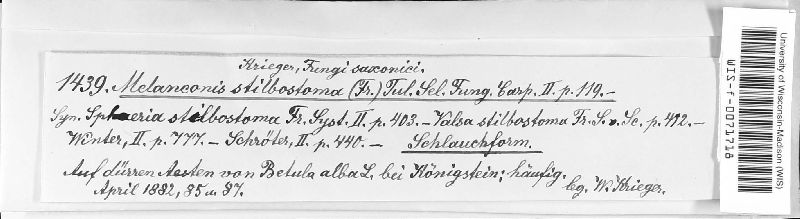 Krieger, Fungi saxonici.
1439. Melanconis stilbostoma (Fr.) Tul. Sel. Fung. Carp. II. p. 119. –
Syn. Sphaeria stilbostoma Fr. Syst. II. p. 403. – Valsa stilbostoma Fr. S. v. Sc. p. 412. –
Winter, II. p. 777. – Schröter, II. p. 440. – Schlauchform.
Auf dürren Aesten von Betula alba L. bei Königstein; häufig.
April 1882, 85 u. 87.
lg. W. Krieger.
University of Wisconsin-Madison (WIS)
WIS-f-0071718